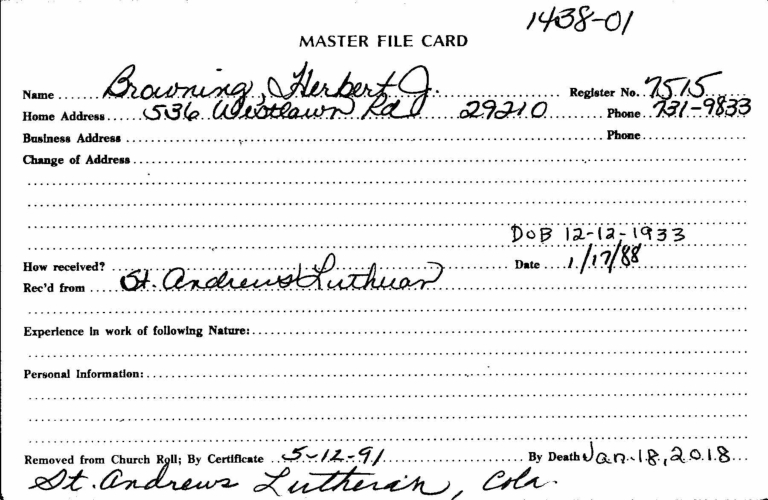 1438-01
MASTER FILE CARD
Name Browning, Herbert J. Register No. 7515
Home Address 536 Westlawn Rd 29210 Phone 731-9833
Business Address Phone
Change of Address
DoB 12-12-1933
How received? Date 1/17/88
Rec'd from St. Andrews Lutheran
Experience in work of following Nature:
Personal Information:
Removed from Church Roll; By Certificate 5-12-91 By Death Jan. 18, 2018
St. Andrews Lutheran, Cola.